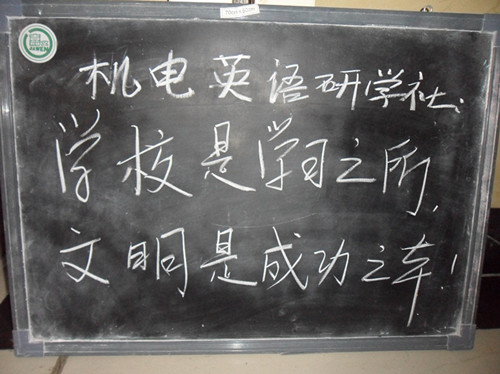 机电英语研学社:
学校是学习之所,
文明是成功之车!